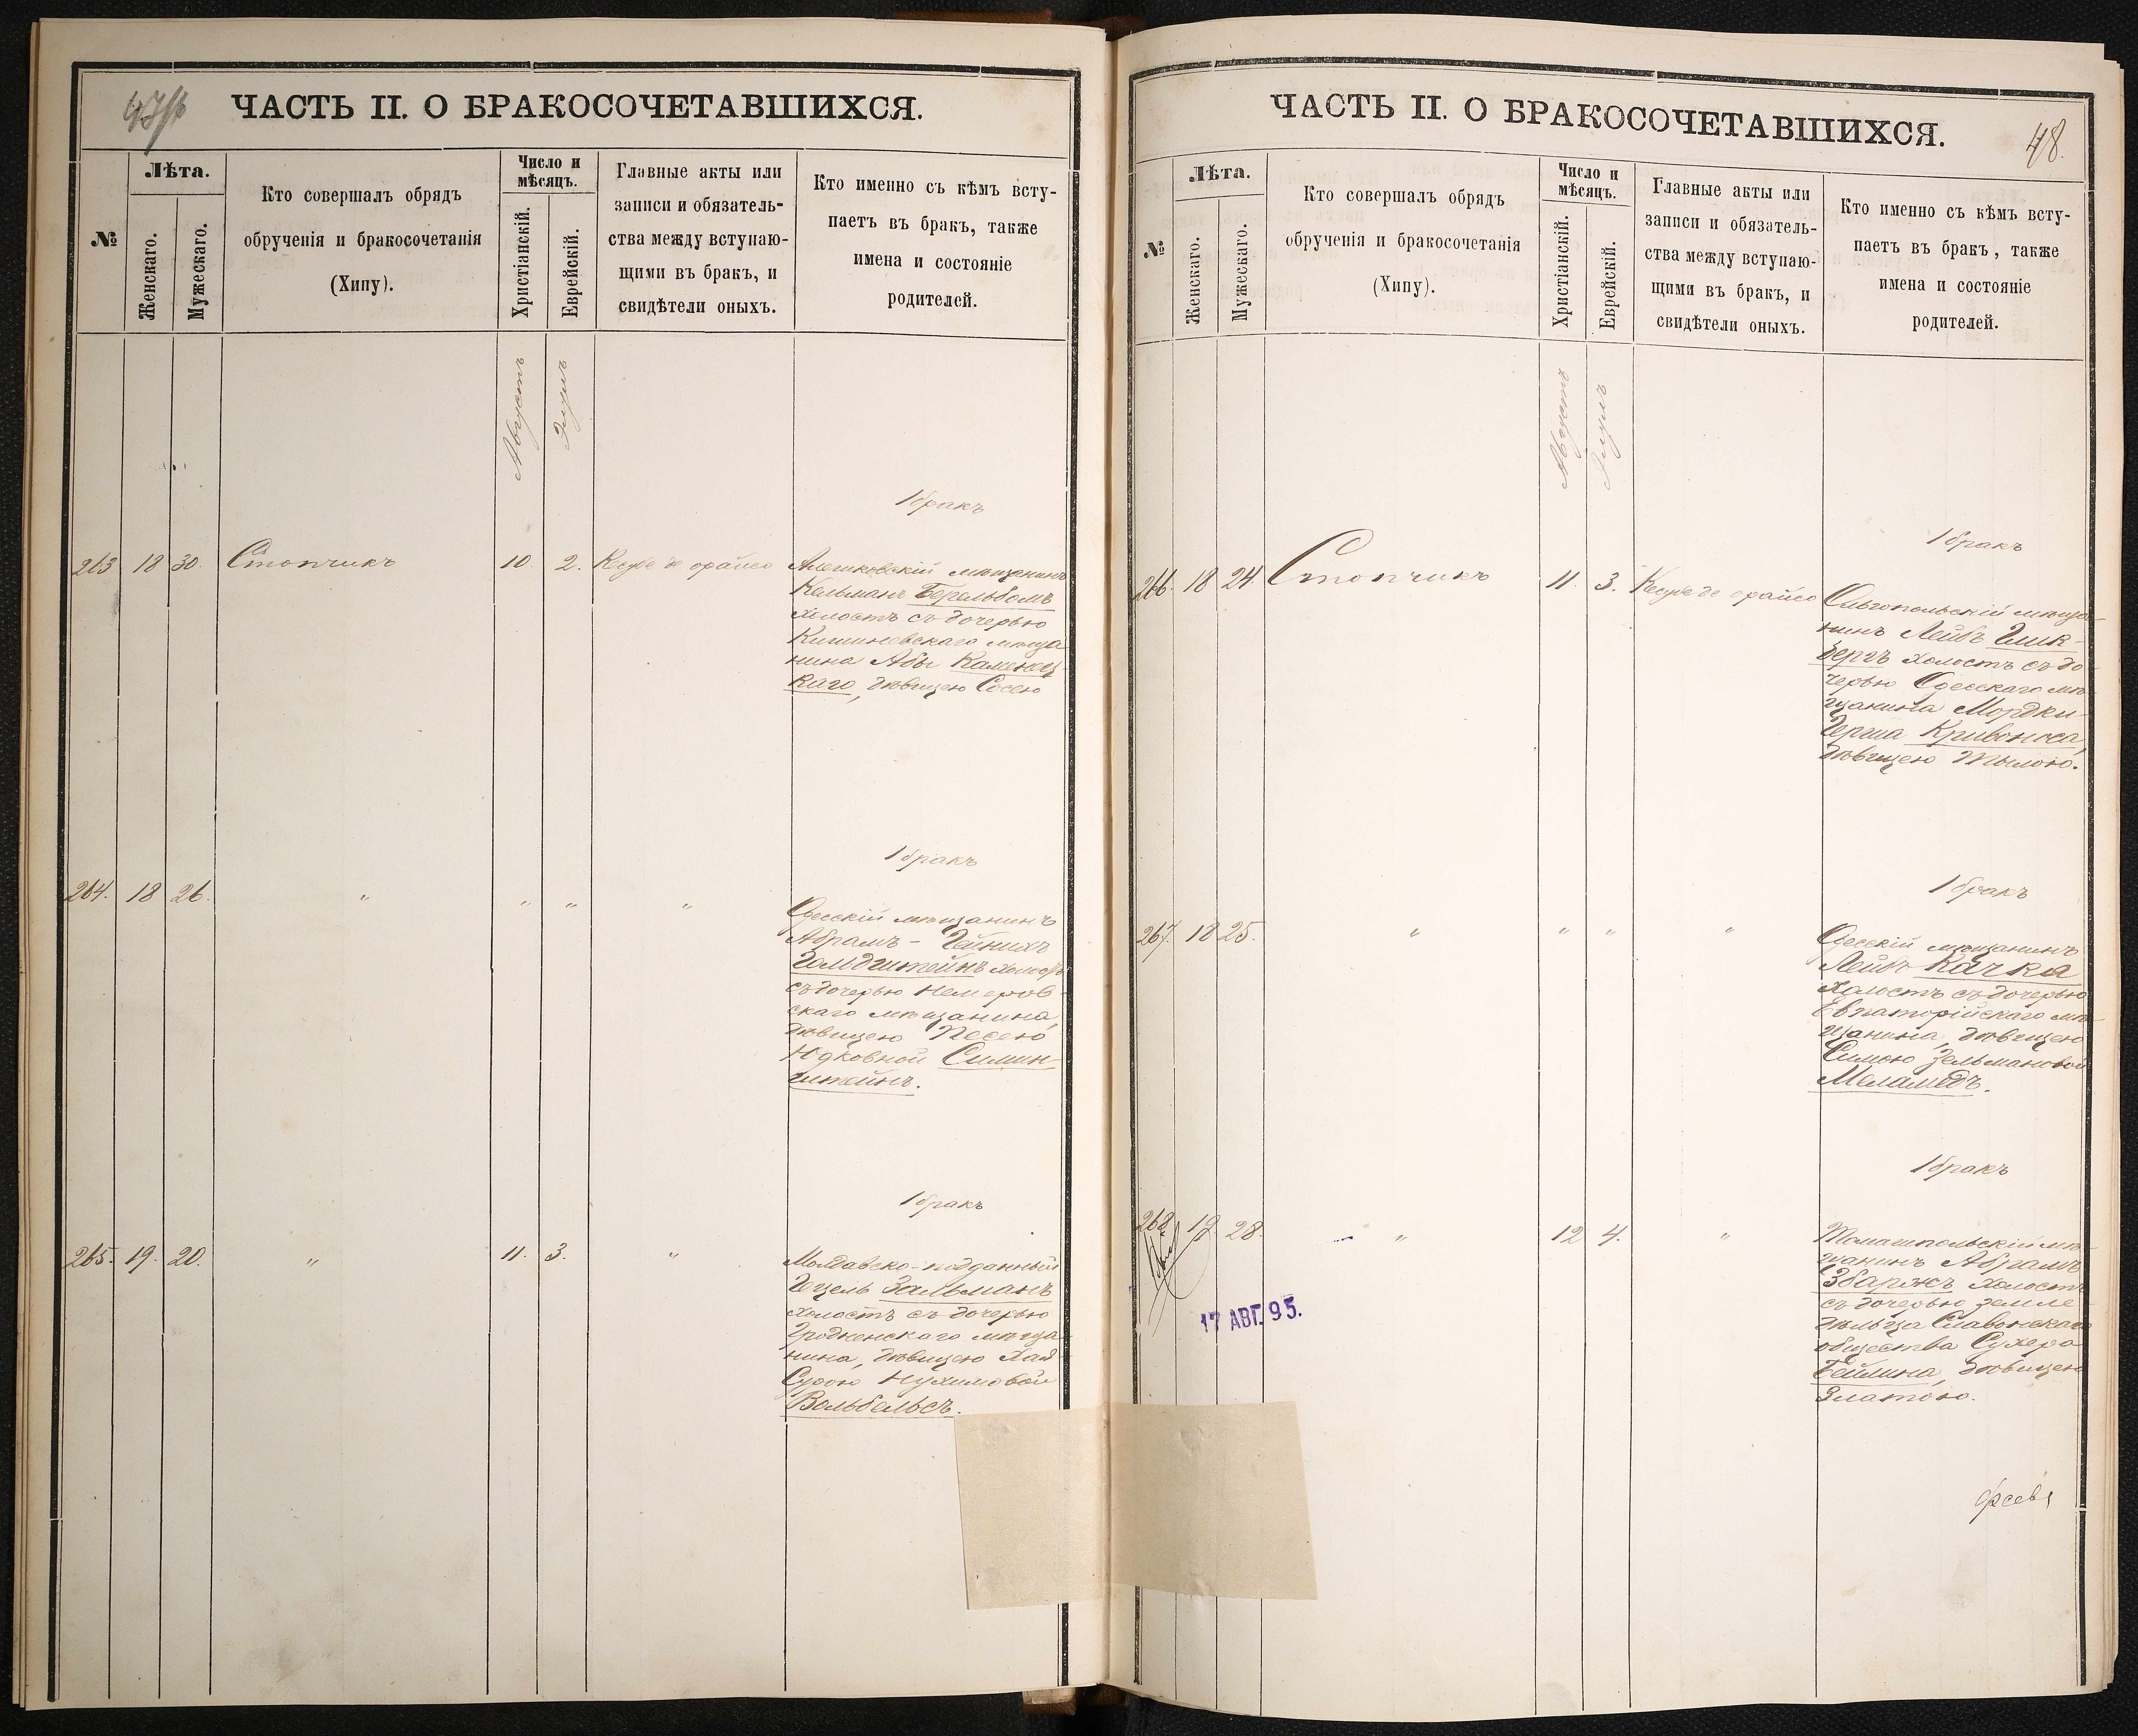 ЧАСТЬ II. О БРАКОСОЧЕТАВШИХСЯ.
№
Лѣта.
Женскаго.
Мужескаго.
Кто совершалъ обрядъ
обрученія и бракосочетанія
(Хипу).
Число и
мѣсяцъ.
Христіанскій.
Еврейскій.
Главные акты или
записи и обязатель-
ства между вступаю-
щими въ бракъ, и
свидѣтели оныхъ.
Кто именно съ кѣмъ всту-
паетъ въ бракъ, также
имена и состояніе
родителей.
Августъ
Элулъ
1 бракъ
263 18 30. Стопчикъ 10. 2. Кесубе де орайсо
мѣщанинъ
Кельманъ Берельбомъ
холостъ съ дочерью
Кишиневскаго мѣща
нина Абы Каменец-
каго, дѣвицею Сосею
1 бракъ
264. 18 26. " " " "
Одесскій мѣщанинъ
Абрамъ - Гейнихъ
Голдштейнъ холостъ
съ дочерью Немеров-
скаго мѣщанина,
дѣвицею Песею
Юдковной
штейнъ.
1 бракъ
265. 19. 20. " 11. 3. "
Молдавско-подданный
Гецель Зальманъ
холостъ съ дочерью
Гродненскаго мѣща
нина, дѣвицею Хая-
Сурою Нухимовой
Вольбельсъ.
ЧАСТЬ II. О БРАКОСОЧЕТАВШИХСЯ.
48.
№
Лѣта.
Женскаго.
Мужескаго.
Кто совершалъ обрядъ
обрученія и бракосочетанія
(Хипу).
Число и
мѣсяцъ.
Христіанскій.
Еврейскій.
Главные акты или
записи и обязатель-
ства между вступаю-
щими въ бракъ, и
свидѣтели оныхъ.
Кто именно съ кѣмъ всту-
паетъ въ бракъ, также
имена и состояніе
родителей.
Августъ
Элулъ
1 бракъ
266. 18 24. Стопчикъ 11. 3. Кесубе де орайсо
Ольгопольскій мѣща-
нинъ Лейбъ Глик-
бергъ холостъ съ до-
черью Одесскаго мѣ-
щанина Мордки-
Герша Кривоноса,
дѣвицею
1 бракъ
267. 18 25. " " " "
Одесскій мѣщанинъ
Лейбъ Качка
холостъ съ дочерью
Евпаторійскаго мѣ-
щанина, дѣвицею
Симою Зельмановой
Меламедъ.
1 бракъ
268 19. 28. " 12 4. "
Томашпольскій мѣ-
щанинъ Абрамъ
Збаржъ холостъ
съ дочерью земле-
дѣльца
общества Сухера
Бейлина, дѣвицею
Златою.
17 АВГ. 95.